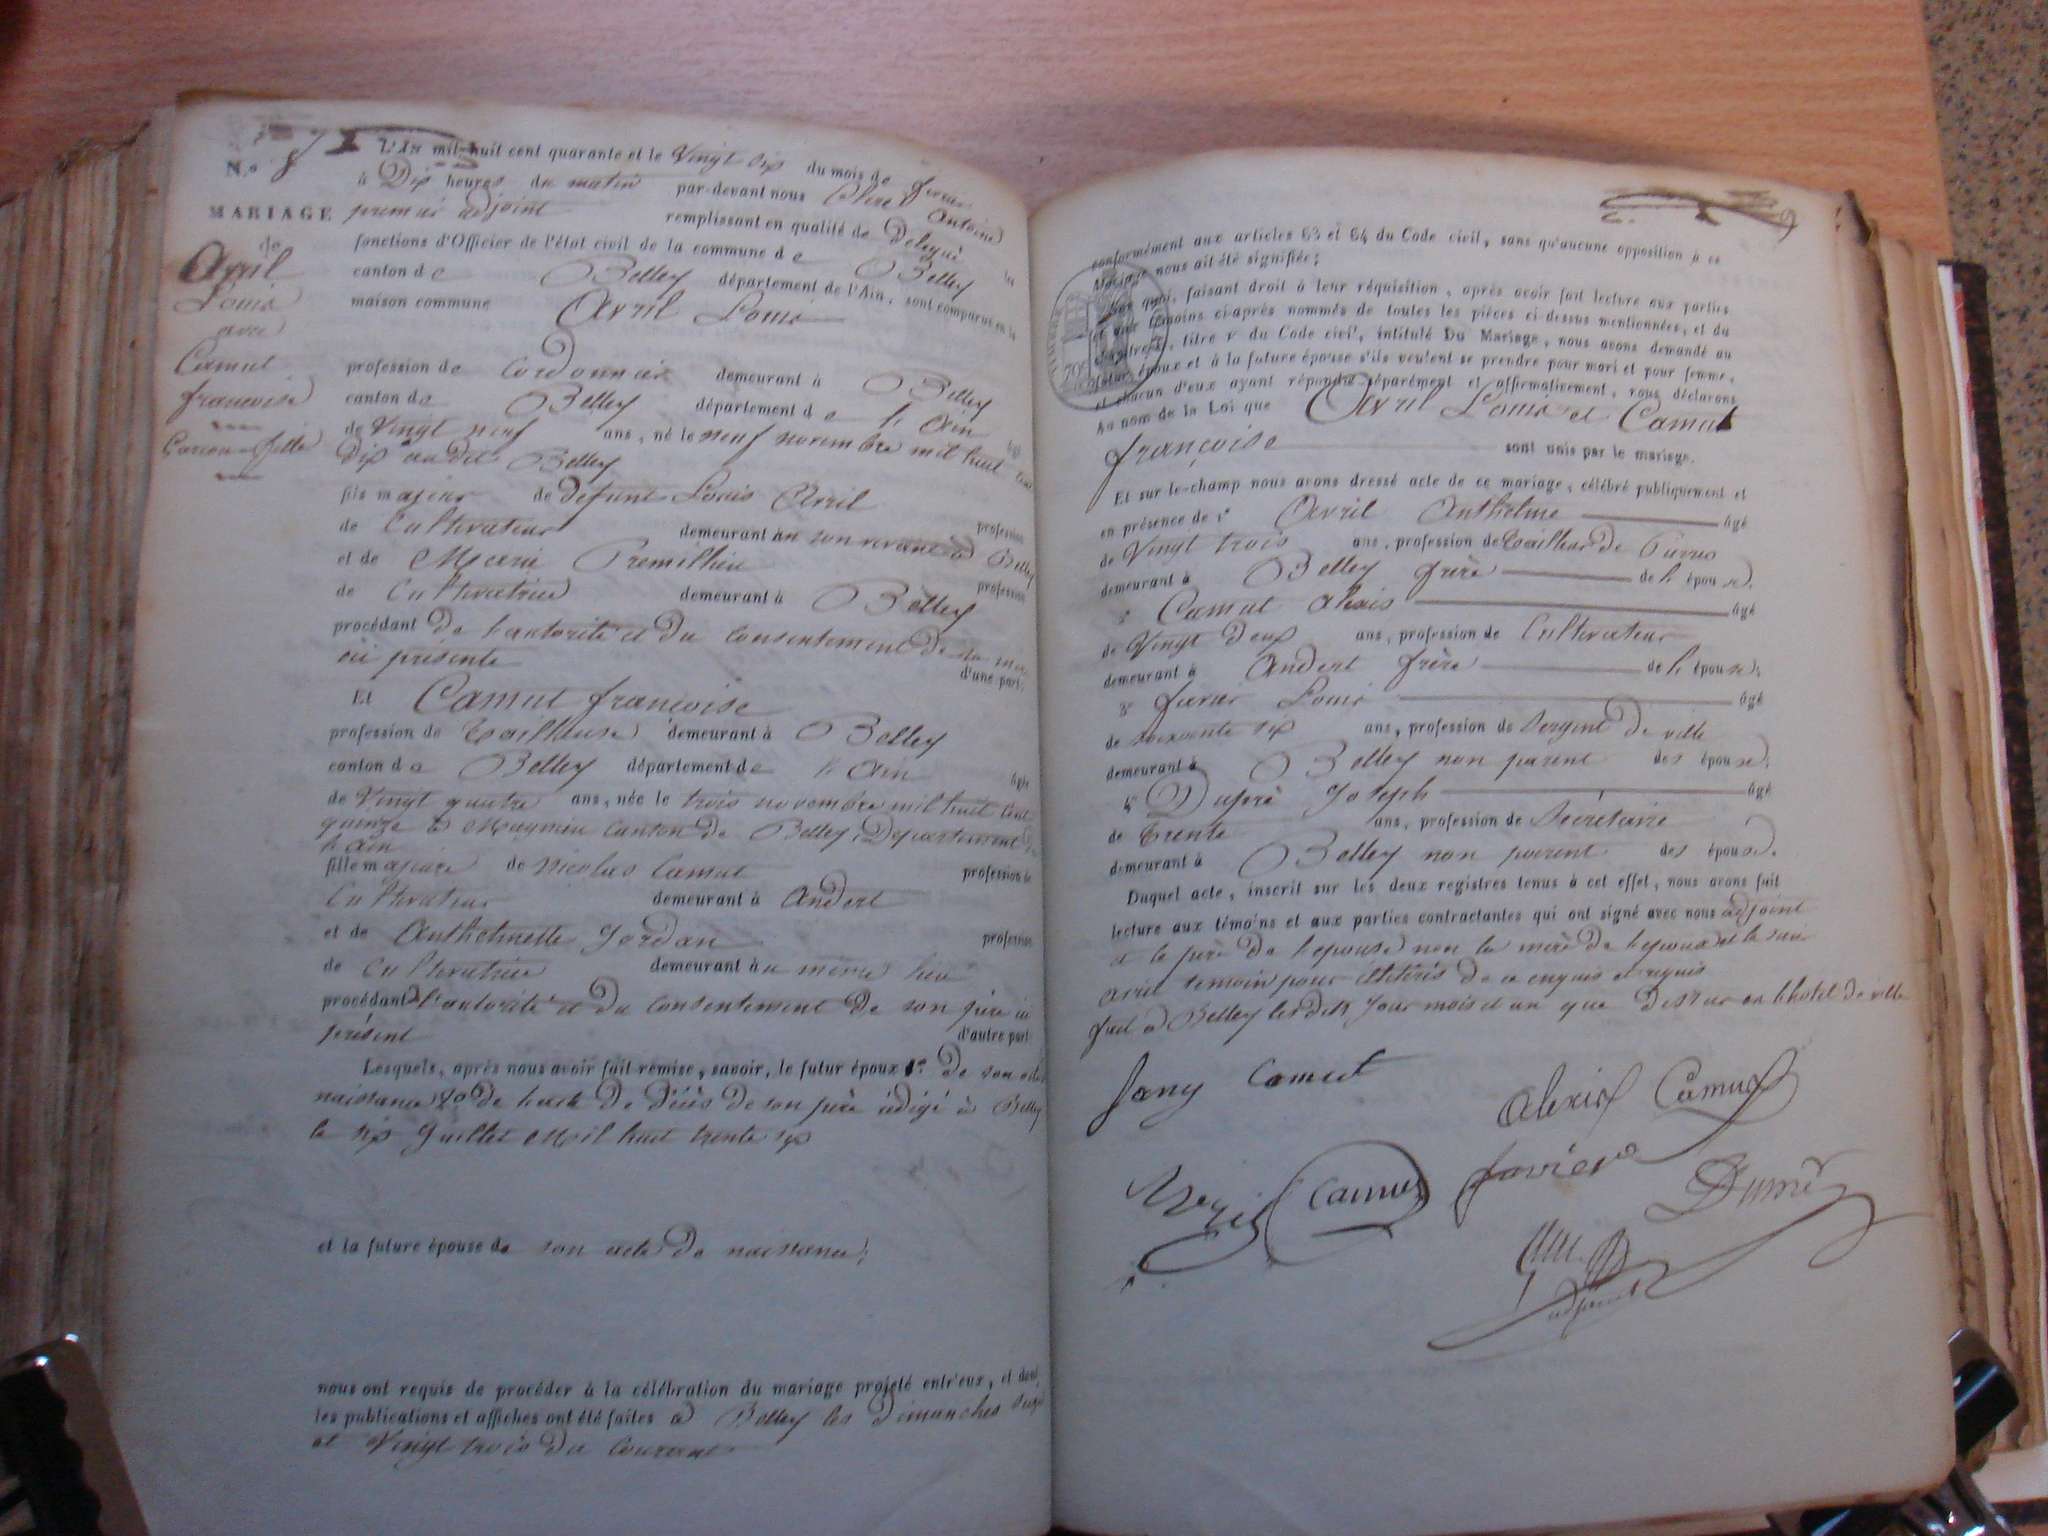 N.º 8
L'An mil huit cent quarante et le Vingt six du mois de
à Dix heures du matin par-devant nous Antoine
premier adjoint remplissant en qualité de Délégué les
MARIAGE
fonctions d'Officier de l'état civil de la commune de Belley
canton de Belley département de l'Ain, sont comparus en la
maison commune Avril Louis
de
Avril
Louis
avec
Camut
françoise
Garçon fille
profession de Cordonnier demeurant à Belley
canton de Belley département de l'Ain âgé
de Vingt neuf ans, né le neuf novembre mil huit cent
Dix au dit Belley
fils majeur de défunt Louis Avril profession
de Cultivateur demeurant en son vivant à Belley
et de Marie Premillieu profession
de Cultivatrice demeurant à Belley
procédant de l'autorité et du Consentement de sa mère
ici présente d'une part;
Et Camut françoise
profession de Tailleuse demeurant à Belley
canton de Belley département de l'Ain âgée
de Vingt quatre ans, née le trois novembre mil huit cent
quinze à Magnieu Canton de Belley, Département de
l'ain
fille majeure de Nicolas Camut profession de
Cultivateur demeurant à Andert
et de Anthelmette Jordan profession
de Cultivatrice demeurant au même lieu
procédant de l'autorité et du Consentement de son père ici
présent d'autre part
Lesquels, après nous avoir fait remise, savoir, le futur époux 1º de son acte de
naissance 2º de l'acte de Décès de son père rédigé à Belley
le six Juillet Mil huit trente six
et la future épouse de son acte de naissance;
nous ont requis de procéder à la célébration du mariage projeté entr'eux, et dont
les publications et affiches ont été faites à Belley les dimanches seize
et Vingt trois du Courant
conformément aux articles 63 et 64 du Code civil, sans qu'aucune opposition à ce
Mariage nous ait été signifiée;
Sur quoi, faisant droit à leur réquisition, après avoir fait lecture aux parties
et aux témoins ci-après nommés de toutes les pièces ci-dessus mentionnées, et du
chapitre 6, titre v du Code civil, intitulé Du Mariage, nous avons demandé au
futur époux et à la future épouse s'ils veulent se prendre pour mari et pour femme,
et chacun d'eux ayant répondu séparément et affirmativement, nous déclarons
Au nom de la Loi que Avril Louis et Camut
françoise sont unis par le mariage.
Et sur-le-champ nous avons dressé acte de ce mariage, célébré publiquement et
en présence de 1º Avril Anthelme âgé
de Vingt trois ans, profession de Tailleur de Pierres
demeurant à Belley frère de l'époux.
2º Camut Alexis âgé
de Vingt deux ans, profession de Cultivateur
demeurant à Andert frère de l'épouse;
3º Louis âgé
de soixante six ans, profession de Sergent de ville
demeurant à Belley non parent des époux;
4º Joseph âgé
de Trente ans, profession de Secrétaire
demeurant à Belley non parent des époux.
Duquel acte, inscrit sur les deux registres tenus à cet effet, nous avons fait
lecture aux témoins et aux parties contractantes qui ont signé avec nous adjoint
et le père de l'épouse non la mère de l'époux et le sieur
Avril témoin pour illétérés de ce enquis et requis
fait à Belley les dits Jour mois et an que Dessus en l'hotel de ville
Camut
Alexis Camut
Camut
adjoint